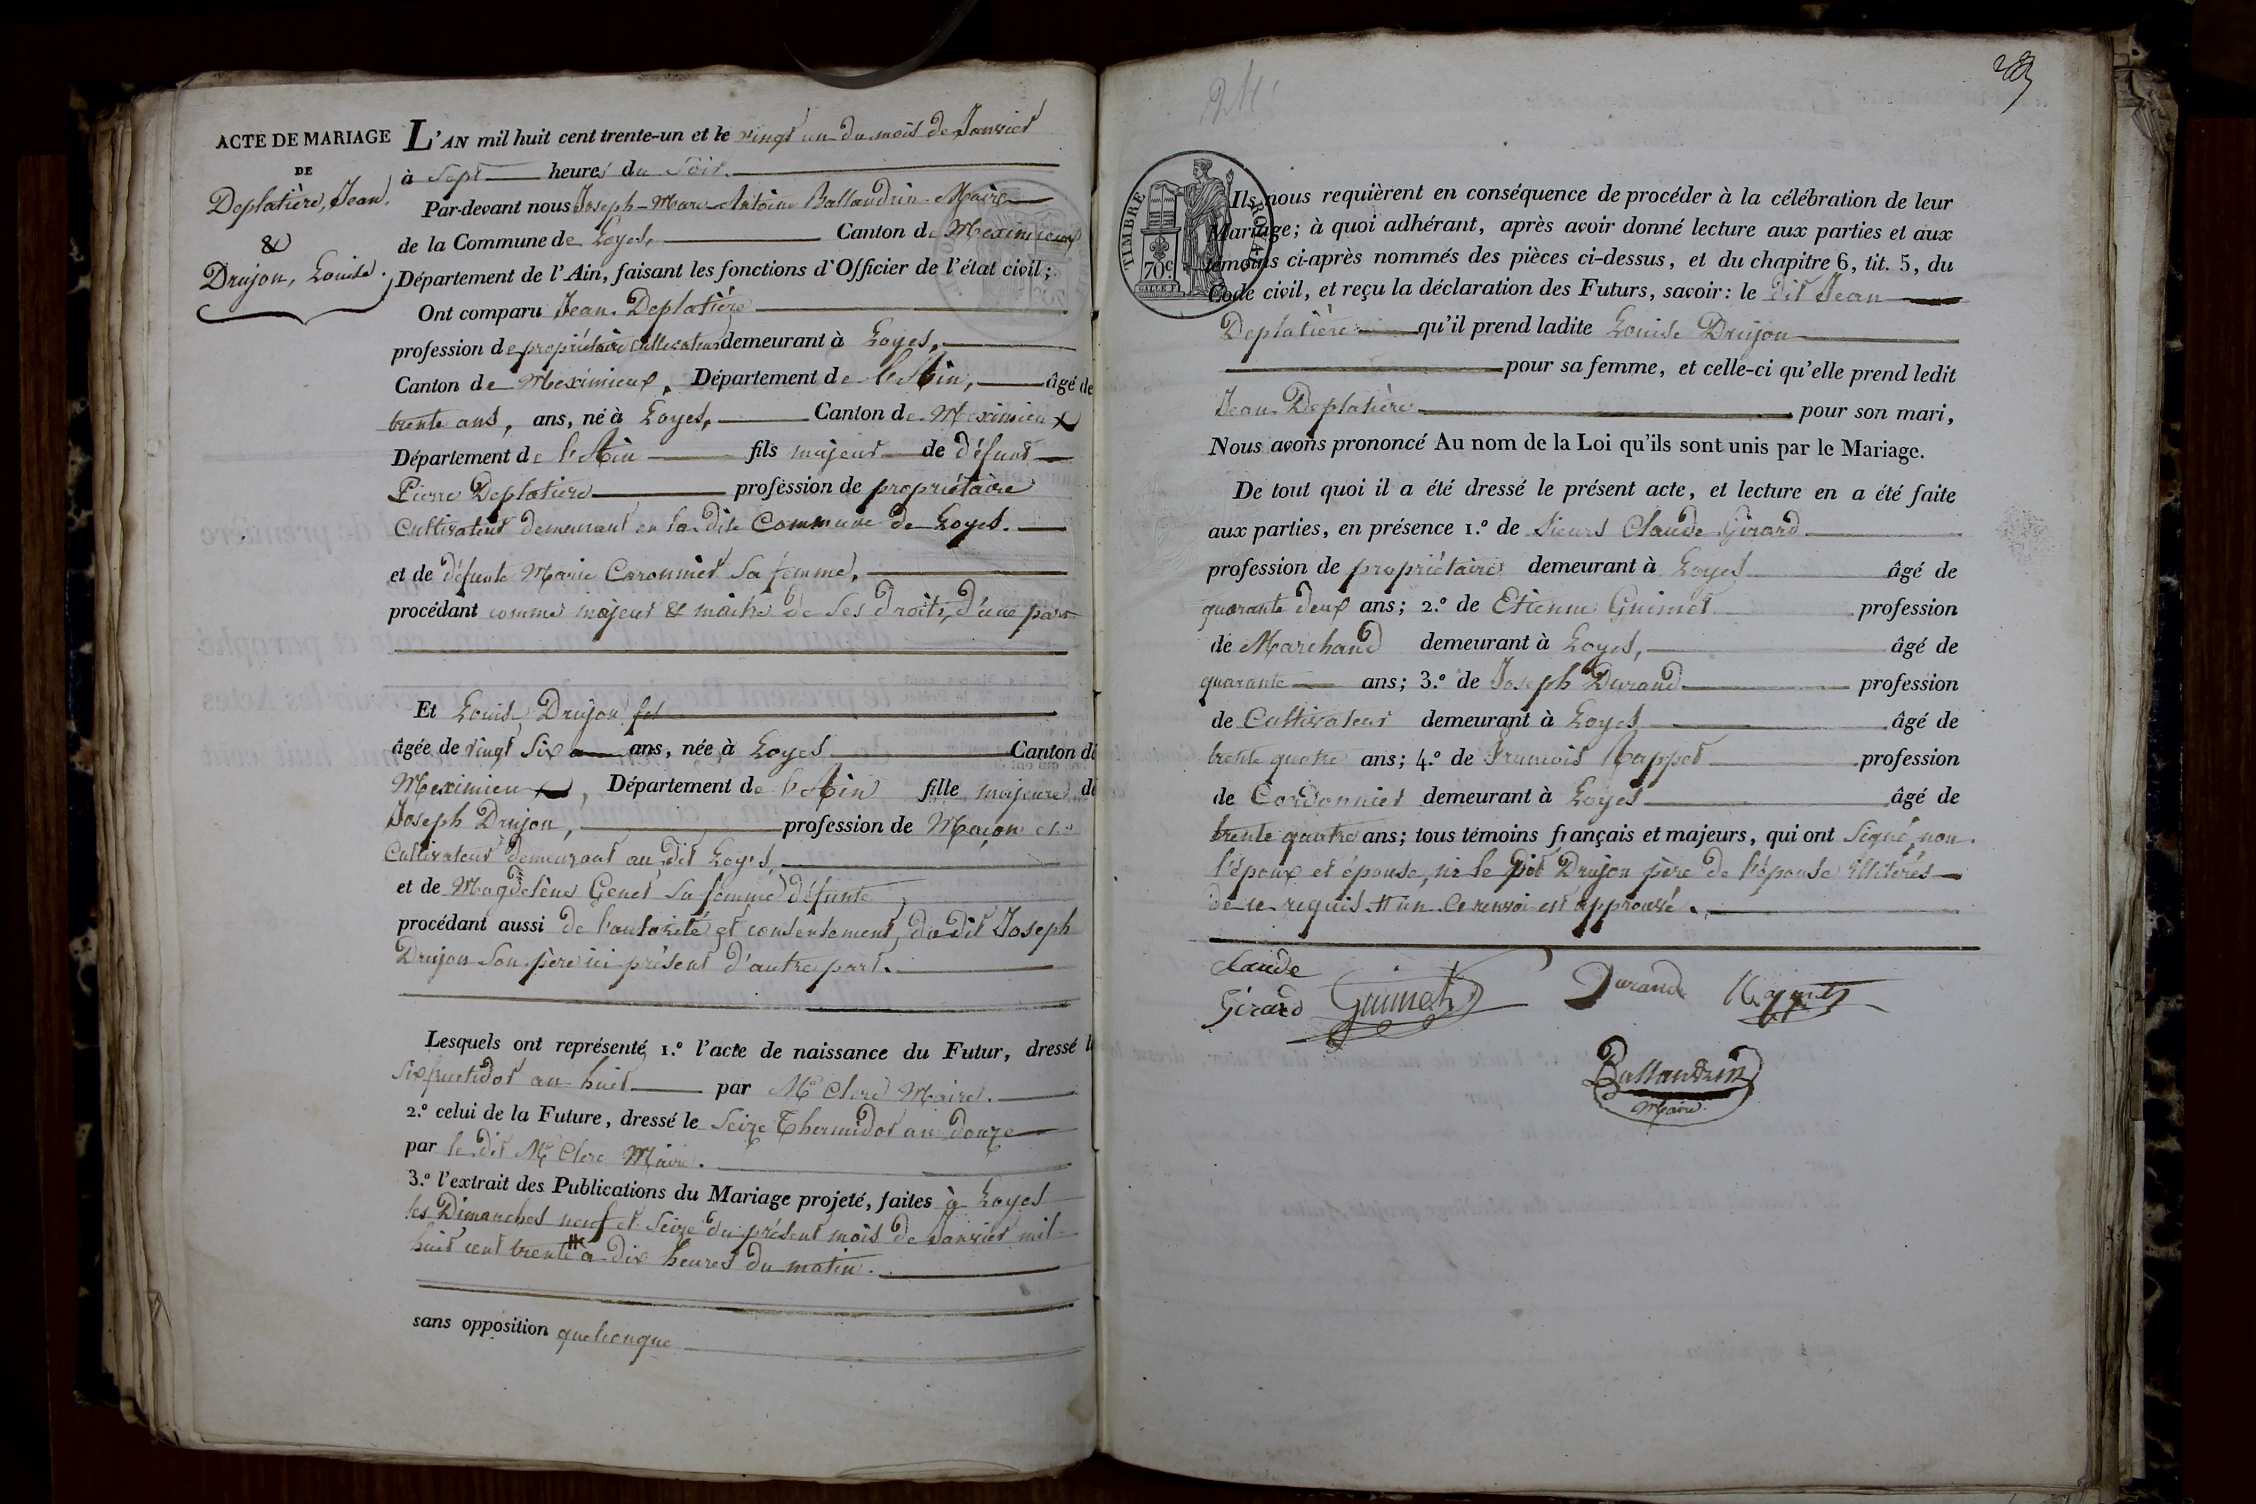 ACTE DE MARIAGE
DE
Deplatière, Jean.
&
Drujon, Louise.
L'AN mil huit cent trente-un et le vingt un du mois de Janvier
à Sept heures du Soir.
Par-devant nous Joseph-Marc-Antoine Ballandrin Maire
de la Commune de Loyes, Canton de Meximieux
Département de l'Ain, faisant les fonctions d'Officier de l'état civil;
Ont comparu Jean Deplatière
profession de propriétaire Cultivateur demeurant à Loyes,
Canton de Meximieux, Département de l'Ain, âgé de
trente ans, ans, né à Loyes, Canton de Meximieux
Département de l'Ain fils majeur de défunt
Pierre Deplatiere profession de propriétaire
Cultivateur demeurant en la dite Commune de Loyes.
et de défunte Marie sa femme,
procédant comme majeur & maitre de ses droits, d'une part
Et Louise Drujon
âgée de vingt six ans, née à Loyes Canton de
Meximieux, Département de l'Ain fille majeure de
Joseph Drujon, profession de Maçon et
Cultivateur demeurant au dit Loyes
et de Magdelène Genet sa femme défunte
procédant aussi de l'autorité et consentement du dit Joseph
Drujon son père ici présent d'autre part.
Lesquels ont représenté, 1.º l'acte de naissance du Futur, dressé le
six fructidor an huit par Mr Clerc Maire.
2.º celui de la Future, dressé le Seize Thermidor an douze
par le dit Mr Clerc Maire.
3.º l'extrait des Publications du Mariage projeté, faites à Loyes
les Dimanches neuf et Seize du présent mois de Janvier mil
huit cent trente # à dix heures du matin.
sans opposition quelconque
TIMBRE ROYAL
70c
Ils nous requièrent en conséquence de procéder à la célébration de leur
Mariage; à quoi adhérant, après avoir donné lecture aux parties et aux
témoins ci-après nommés des pièces ci-dessus, et du chapitre 6, tit. 5, du
Code civil, et reçu la déclaration des Futurs, savoir: le dit Jean
Deplatière qu'il prend ladite Louise Drujon
pour sa femme, et celle-ci qu'elle prend ledit
Jean Deplatière pour son mari,
Nous avons prononcé Au nom de la Loi qu'ils sont unis par le Mariage.
De tout quoi il a été dressé le présent acte, et lecture en a été faite
aux parties, en présence 1.º de Sieurs Claude Girard
profession de propriétaire demeurant à Loyes âgé de
quarante deux ans; 2.º de Etienne Guimet profession
de Marchand demeurant à Loyes, âgé de
quarante ans; 3.º de Joseph Durand profession
de Cultivateur demeurant à Loyes âgé de
trente quatre ans; 4.º de François profession
de Cordonnier demeurant à Loyes âgé de
trente quatre ans; tous témoins français et majeurs, qui ont Signé, non
l'époux et épouse, ni le dit Drujon père de l'épouse illitérés
de ce requis. # un Ce renvoi est approuvé.
Claude
Girard Guimet Durand
Ballandrin
Maire